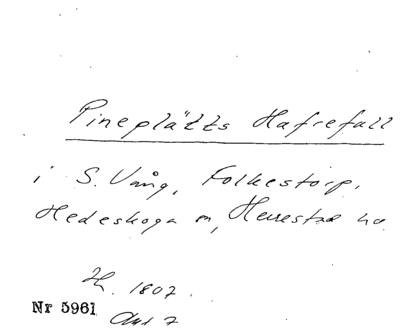 Pineplätts Hafrefall
i S. Vång, Folkestorp,
Hedeskoga m, Herrestad hd
1807.
Nr 5961